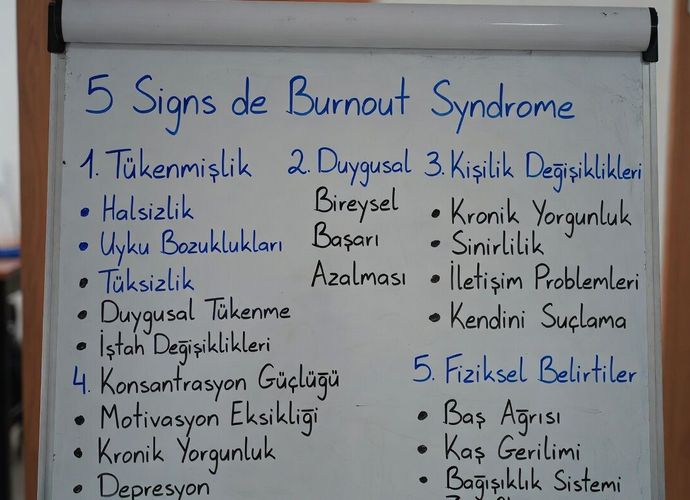 5 Signs de Burnout Syndrome
1. Tükenmişlik
• Halsizlik
• Uyku Bozuklukları
• Tüksizlik
• Duygusal Tükenme
• İştah Değişiklikleri
2. Duygusal
Bireysel
Başarı
Azalması
3. Kişilik Değişiklikleri
• Kronik Yorgunluk
• Sinirlilik
• İletişim Problemleri
• Kendini Suçlama
4. Konsantrasyon Güçlüğü
• Motivasyon Eksikliği
• Kronik Yorgunluk
• Depresyon
5. Fiziksel Belirtiler
• Baş Ağrısı
• Kaş Gerilimi
• Bağışıklık Sistemi